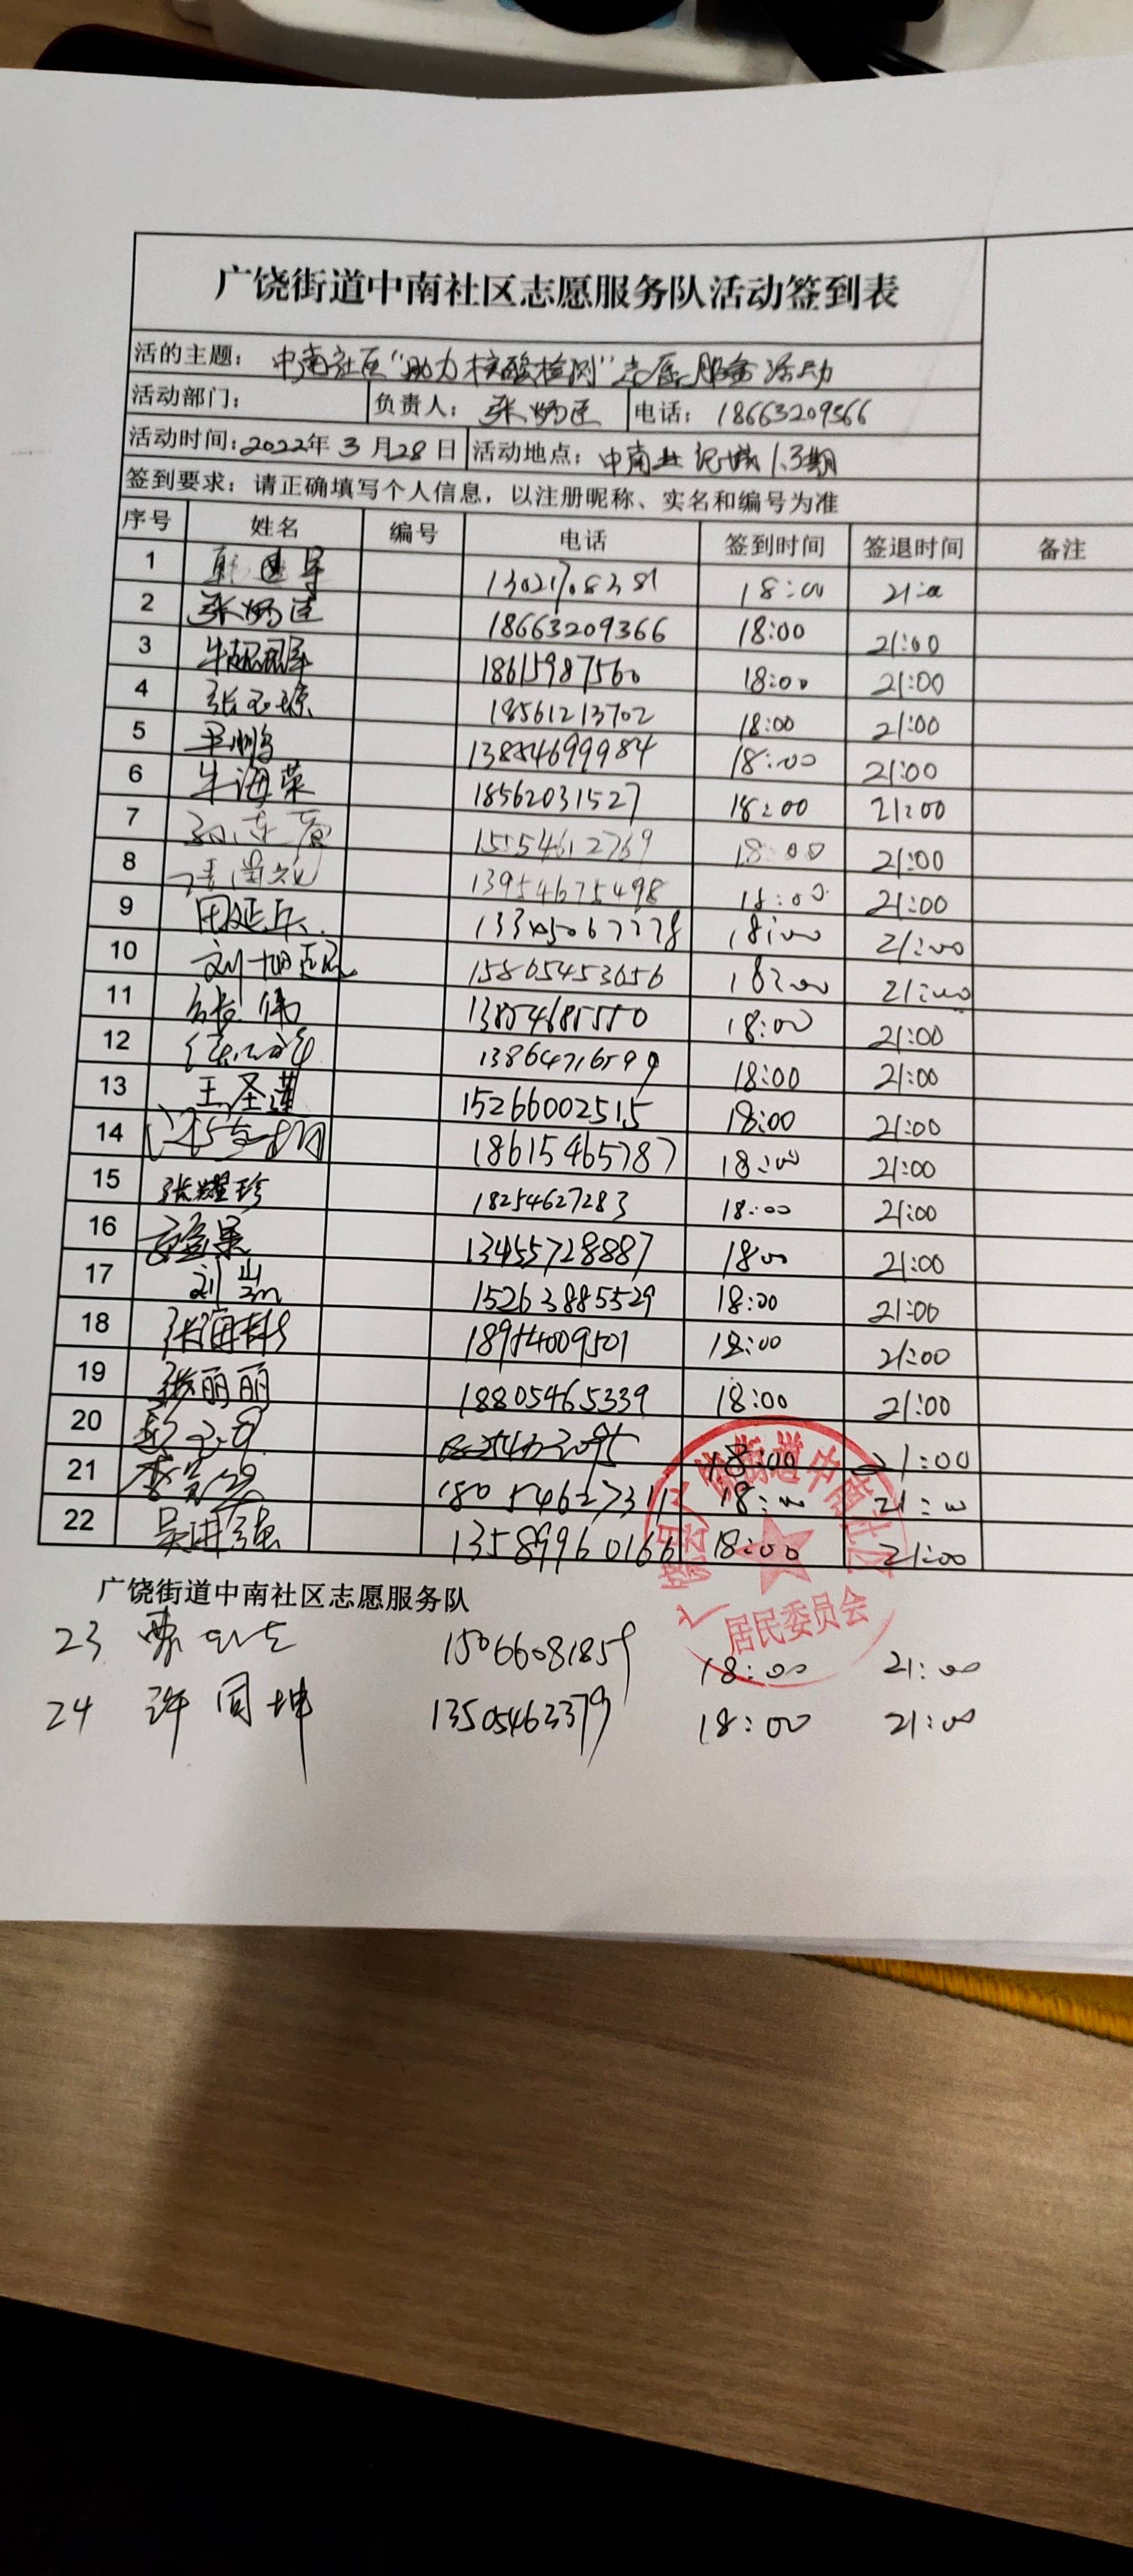 广饶街道中南社区志愿服务队活动签到表
活的主题： 中南社区“助力核酸检测”志愿服务活动
活动部门： 负责人： 张炳臣 电话： 18663209366
活动时间：2022年3月28日 活动地点： 中南世纪城1.3期
签到要求：请正确填写个人信息，以注册昵称、实名和编号为准
序号 姓名 编号 电话 签到时间 签退时间 备注
1 18:00 21:00
2 张炳臣 18663209366 18:00 21:00
3 18615987560 18:00 21:00
4 张玉琼 18561213702 18:00 21:00
5 13854699984 18:00 21:00
6 牛海荣 18562031527 18:00 21:00
7 15554612769 18:00 21:00
8 13954675498 18:00 21:00
9 田延兵 18:00 21:00
10 15865453656 18:00 21:00
11 张伟 13854685550 18:00 21:00
12 13864716599 18:00 21:00
13 王圣莲 15266002515 18:00 21:00
14 18615465787 18:00 21:00
15 张耀珍 18254627283 18:00 21:00
16 13455728887 18:00 21:00
17 刘 15263885529 18:00 21:00
18 18954009501 18:00 21:00
19 张丽丽 18805465339 18:00 21:00
20 18:00 21:00
21 18054627311 18:00 21:00
22 吴进强 13589960166 18:00 21:00
街道中南社区
居民委员会
广饶街道中南社区志愿服务队
23 15066081859 18:00 21:00
24 许同坤 13505463379 18:00 21:00